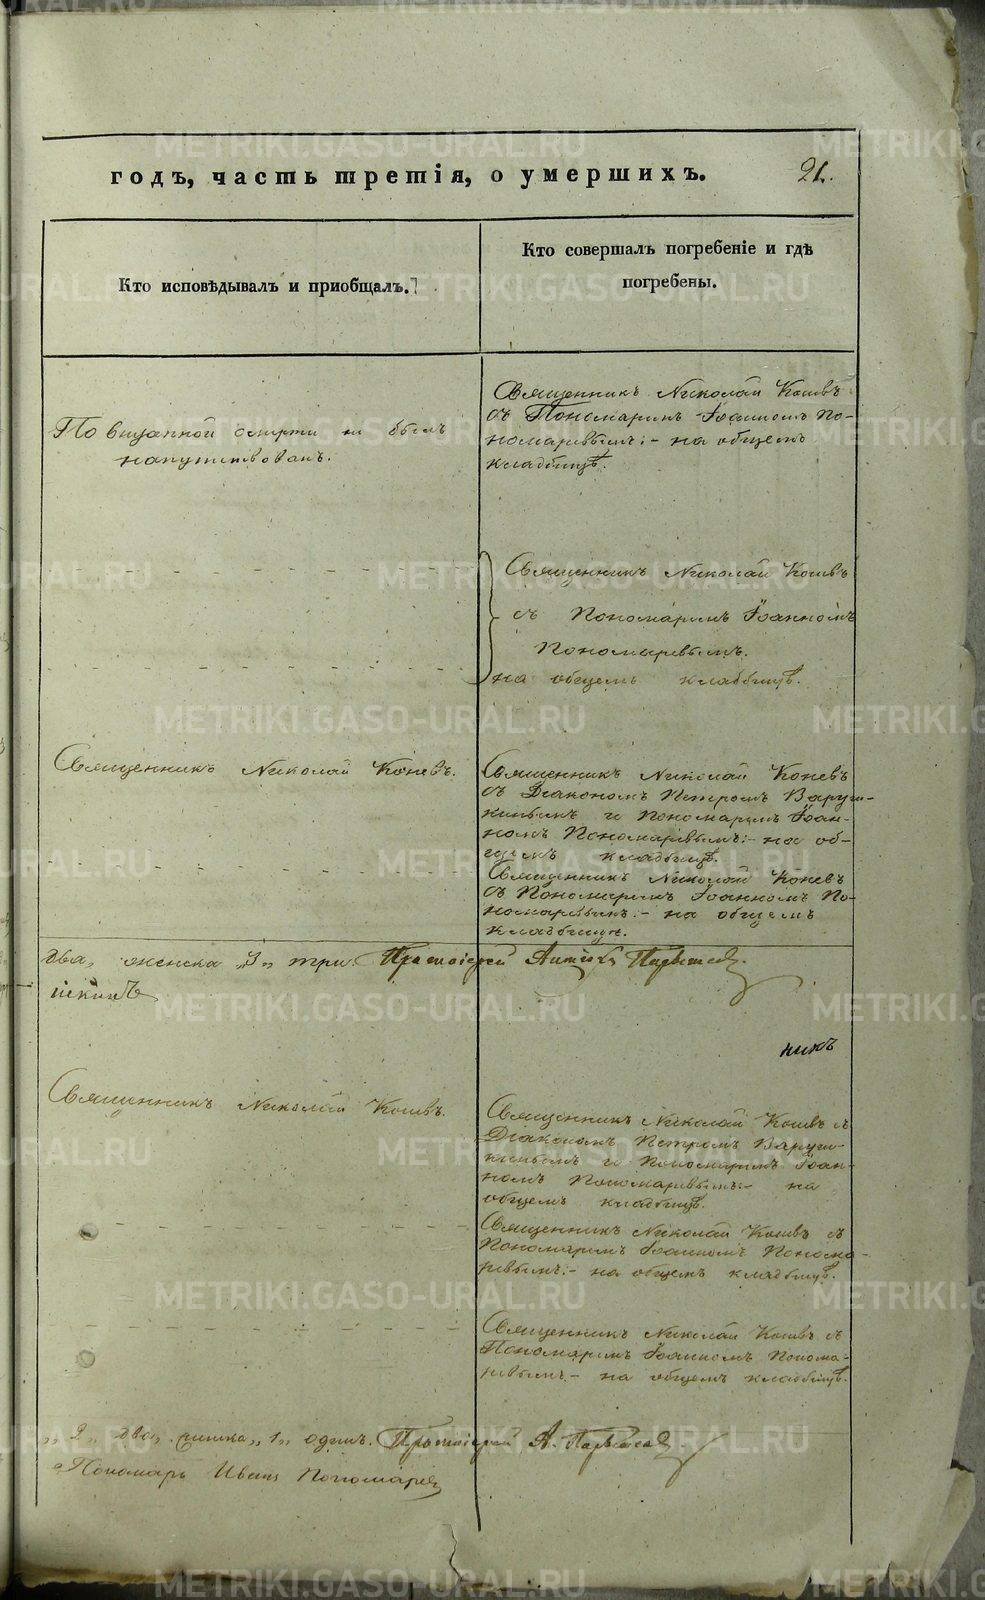 годъ, часть третія, о умершихъ.
21.
Кто исповѣдывалъ и приобщалъ.
Кто совершалъ погребеніе и гдѣ
погребены.
По внезапной смерти не былъ
напутствованъ.
Священникъ Николай Коневъ
съ Пономаремъ Іоанномъ По-
номаревымъ:- на общемъ
кладбищѣ.
Священникъ Николай Коневъ
съ Пономаремъ Іоанномъ
Пономаревымъ.
на общемъ кладбищѣ.
Священникъ Николай Коневъ.
Священникъ Николай Коневъ
съ Діакономъ Петромъ Варуш-
кинымъ и Пономаремъ Іоан-
номъ Пономаревымъ:- на об-
щемъ кладбищѣ.
Священникъ Николай Коневъ
съ Пономаремъ Іоанномъ По-
номаревымъ:- на общемъ
кладбищѣ.
два, женска „3„ три. Протоіерей
никъ
Священникъ Николай Коневъ.
Священникъ Николай Коневъ съ
Діакономъ Петромъ Варуш-
кинымъ и Пономаремъ Іоан-
номъ Пономаревымъ:- на
общемъ кладбищѣ.
Священникъ Николай Коневъ съ
Пономаремъ Іоанномъ Понома-
ревымъ:- на общемъ кладбищѣ.
Священникъ Николай Коневъ съ
Пономаремъ Іоанномъ Понома-
ревымъ.- на общемъ кладбищѣ.
„ 2 „ два, „1„ одинъ. Протоіерей А.
Пономарь Иванъ Пономаревъ
METRIKI.GASO-URAL.RU